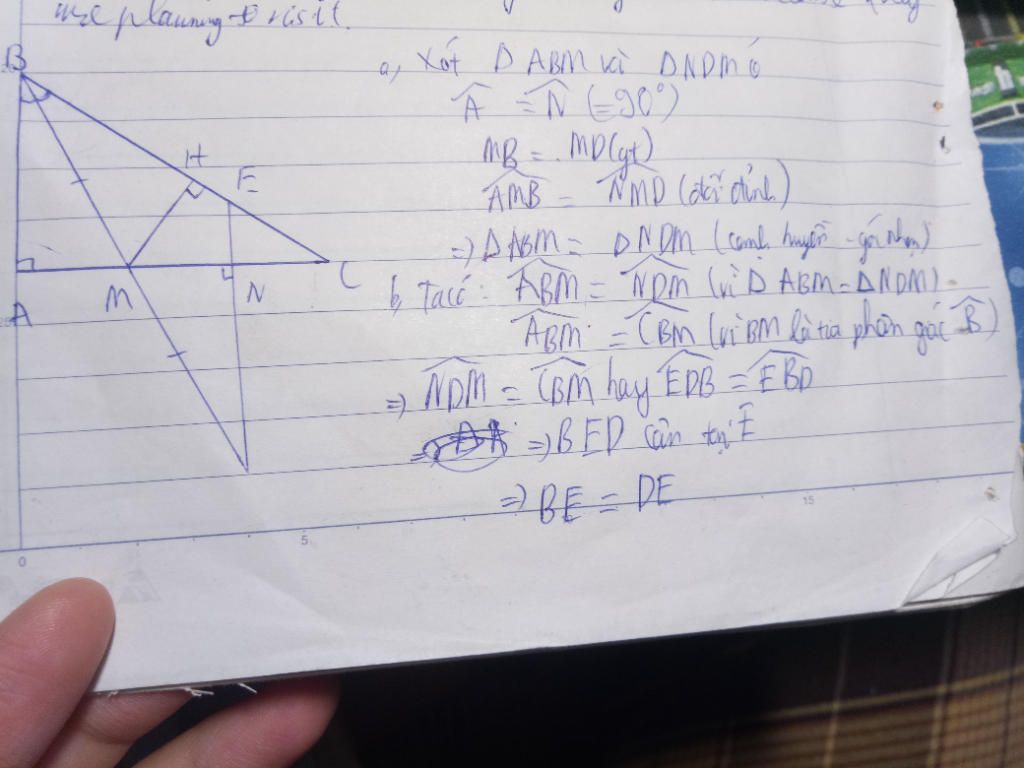 we planning to visit.
B
H
E
A
M
N
C
a, Xét Δ ABM và ΔNDM có
Â = N̂ (=90°)
MB = MD(gt)
AMB = NMD (đối đỉnh)
=> Δ ABM = ΔNDM (cạnh huyền - góc nhọn)
b, Ta có: ABM = NDM (vì Δ ABM = ΔNDM)
ABM = CBM (vì BM là tia phân giác B̂)
=> NDM = CBM hay EDB = EBD
=> BED cân tại E
=> BE = DE
0
5
15